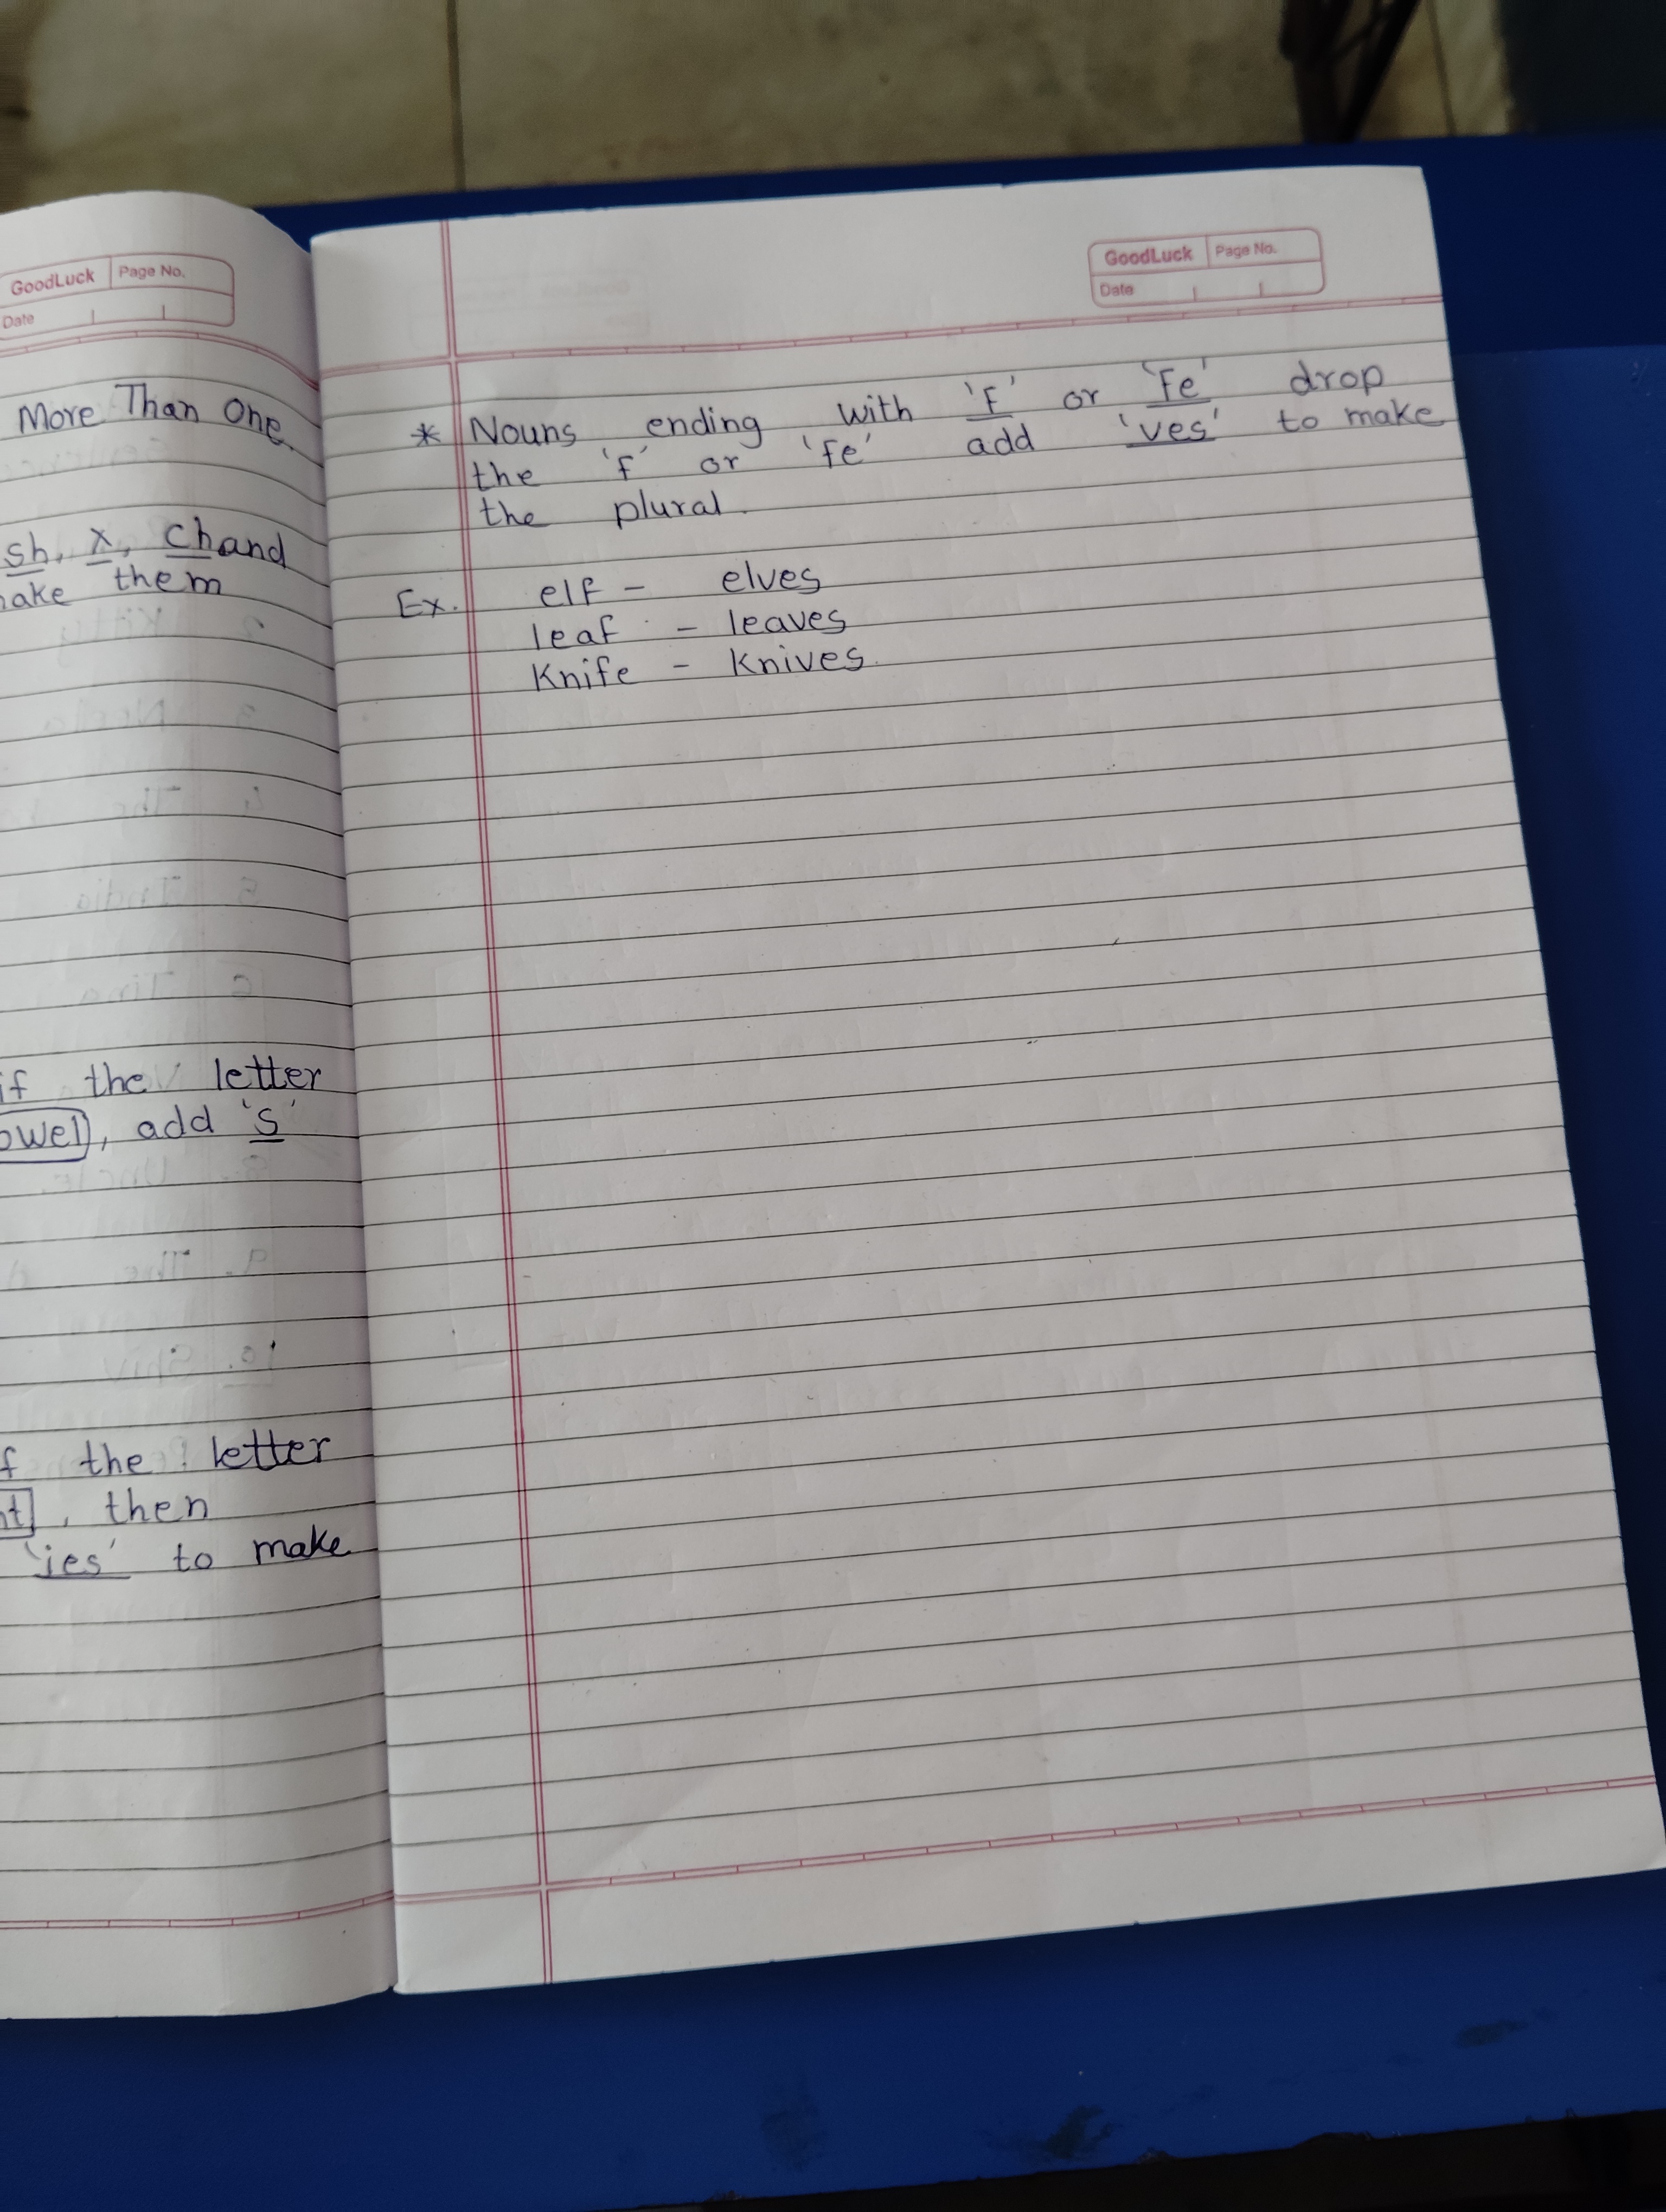 GoodLuck Page No.
Date
More Than One
sh, x, ch and
make them
if the letter
vowel, add 's'
if the letter
nt, then
'ies' to make
GoodLuck Page No.
Date
* Nouns ending with 'f' or 'fe' drop
the 'f' or 'fe' add 'ves' to make
the plural.
Ex. elf - elves
leaf - leaves
Knife - Knives.